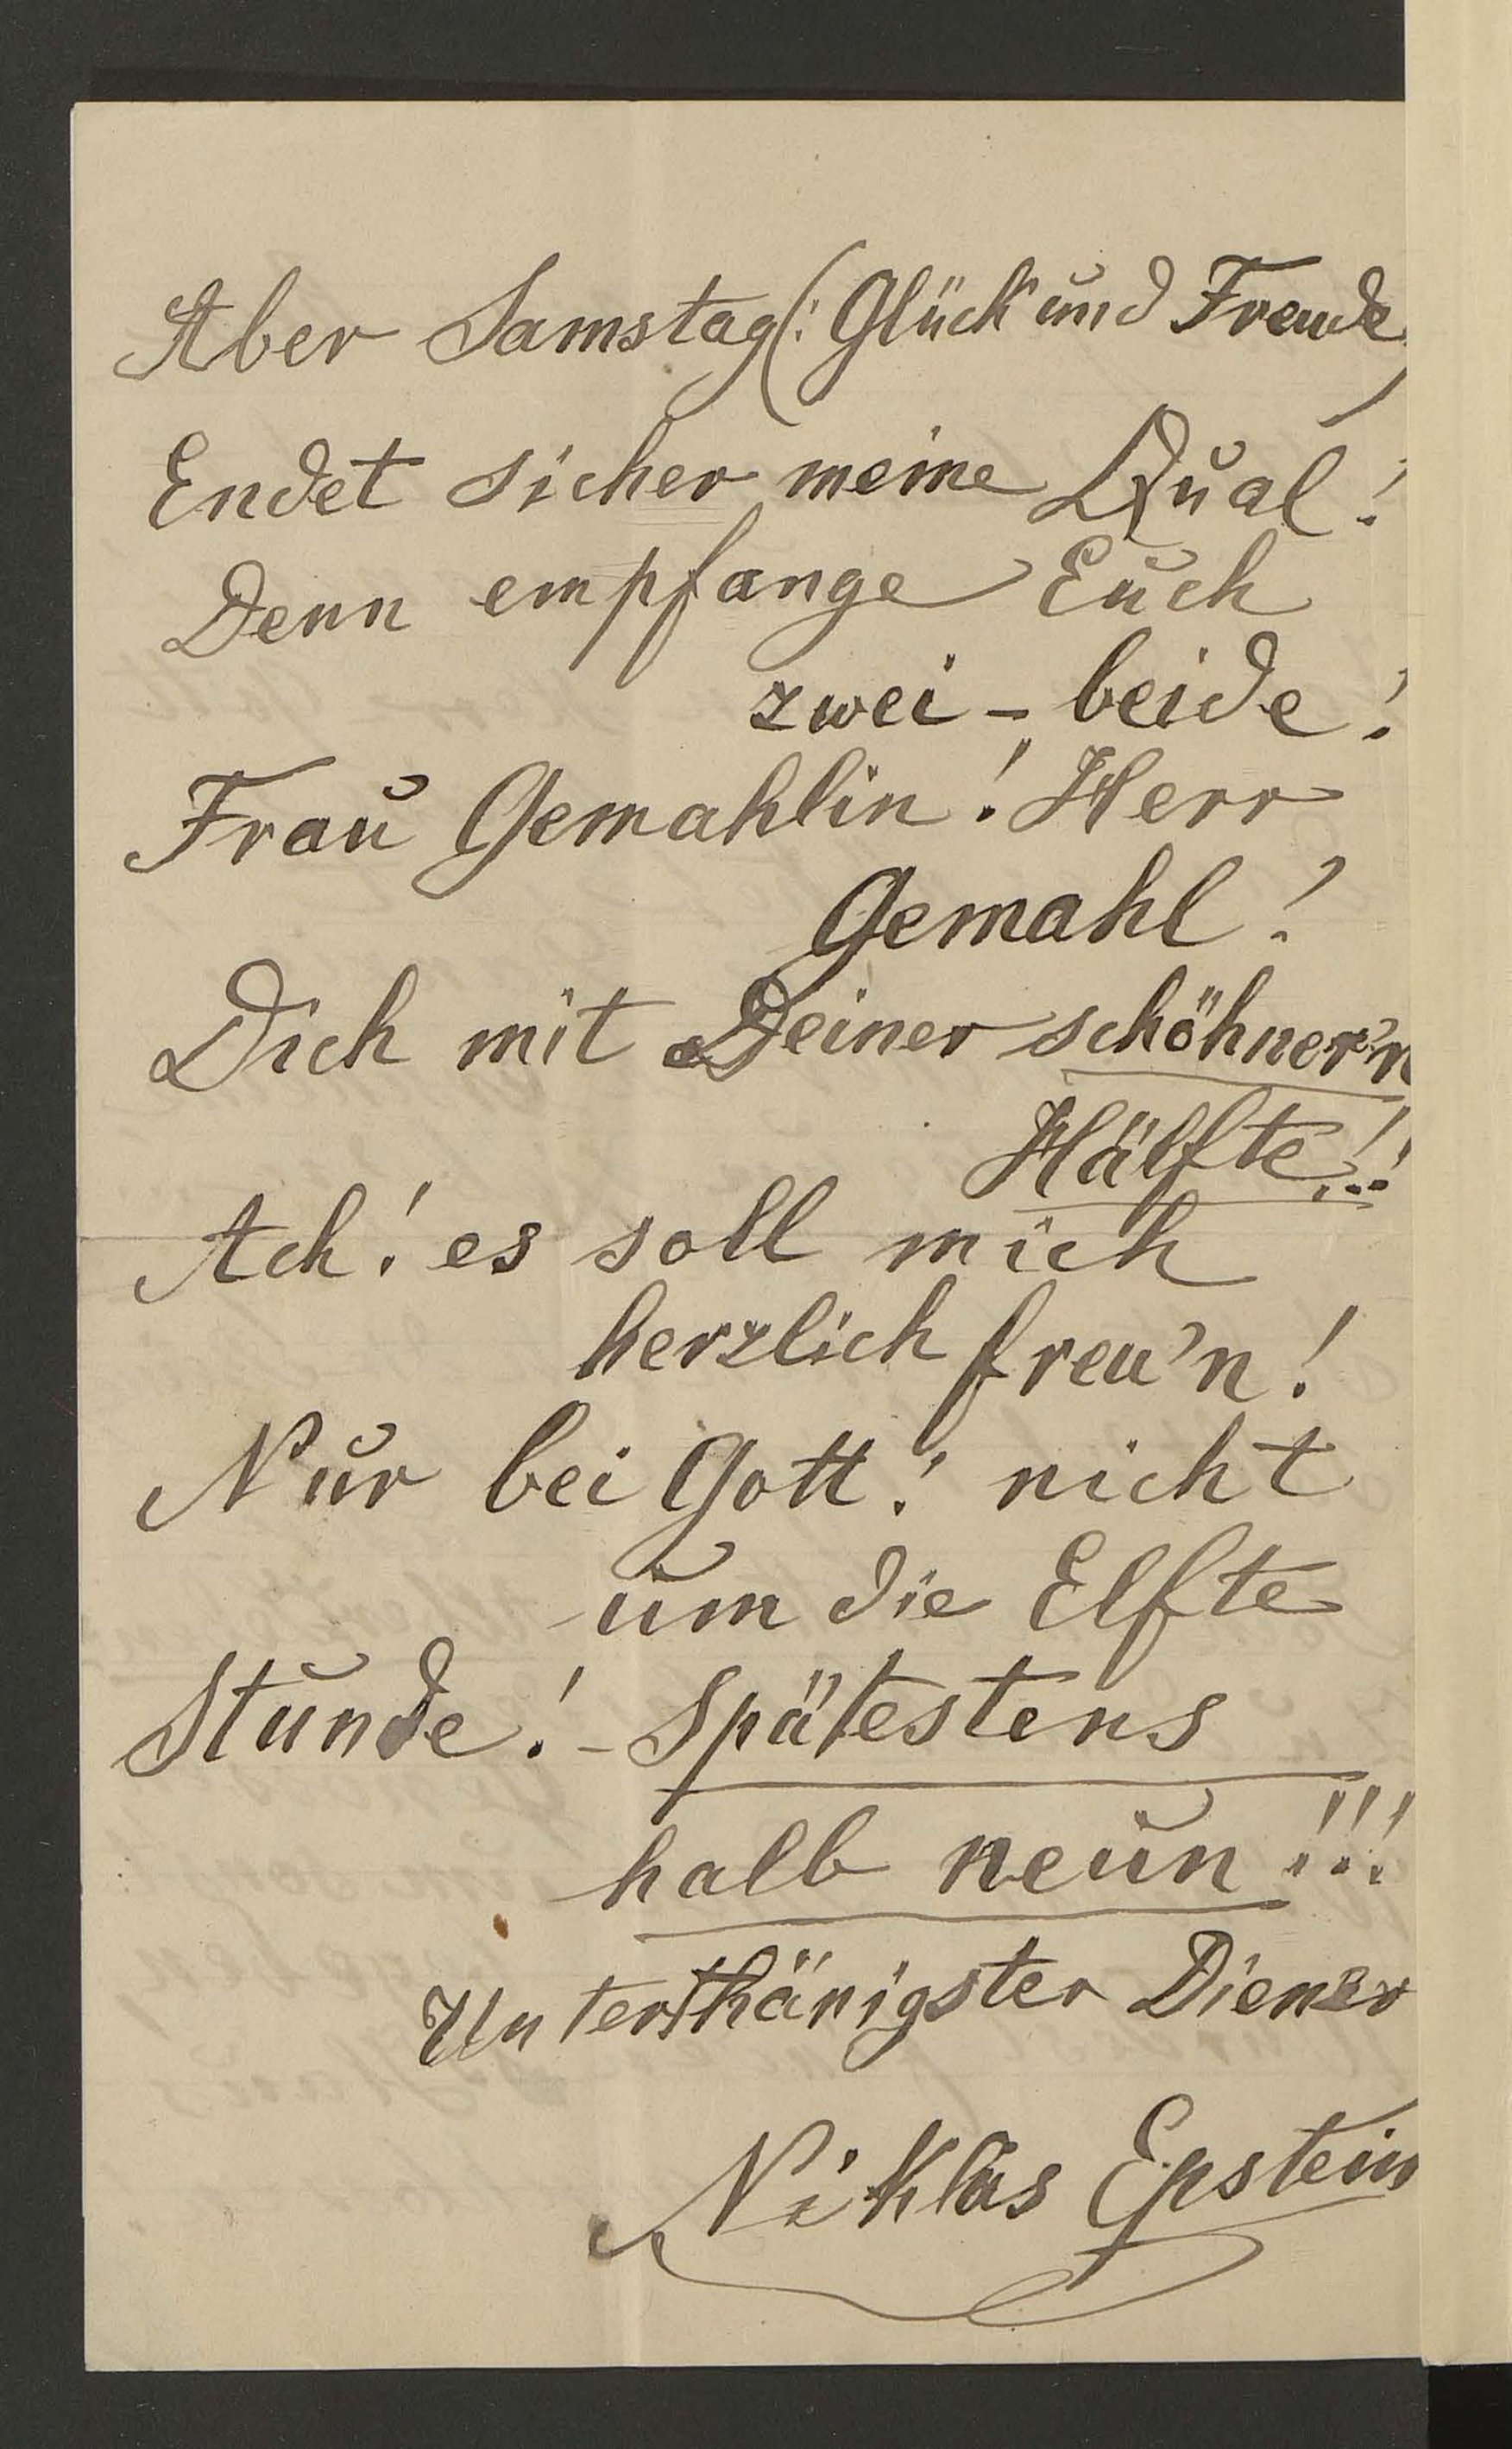 Aber Samstag (: Glück und Freude)
Endet sicher meine Qual!
Denn empfange Euch
zwei - beide!
Frau Gemahlin! Herr
Gemahl!
Dich mit Deiner schöhner'n
Hälfte!!!
Ach! es soll mich
herzlich freu'n!
Nur bei Gott! nicht
um die Elfte
Stunde! - Spätestens
halb neun!!!
Unterthänigster Diener
Niklas Epstein